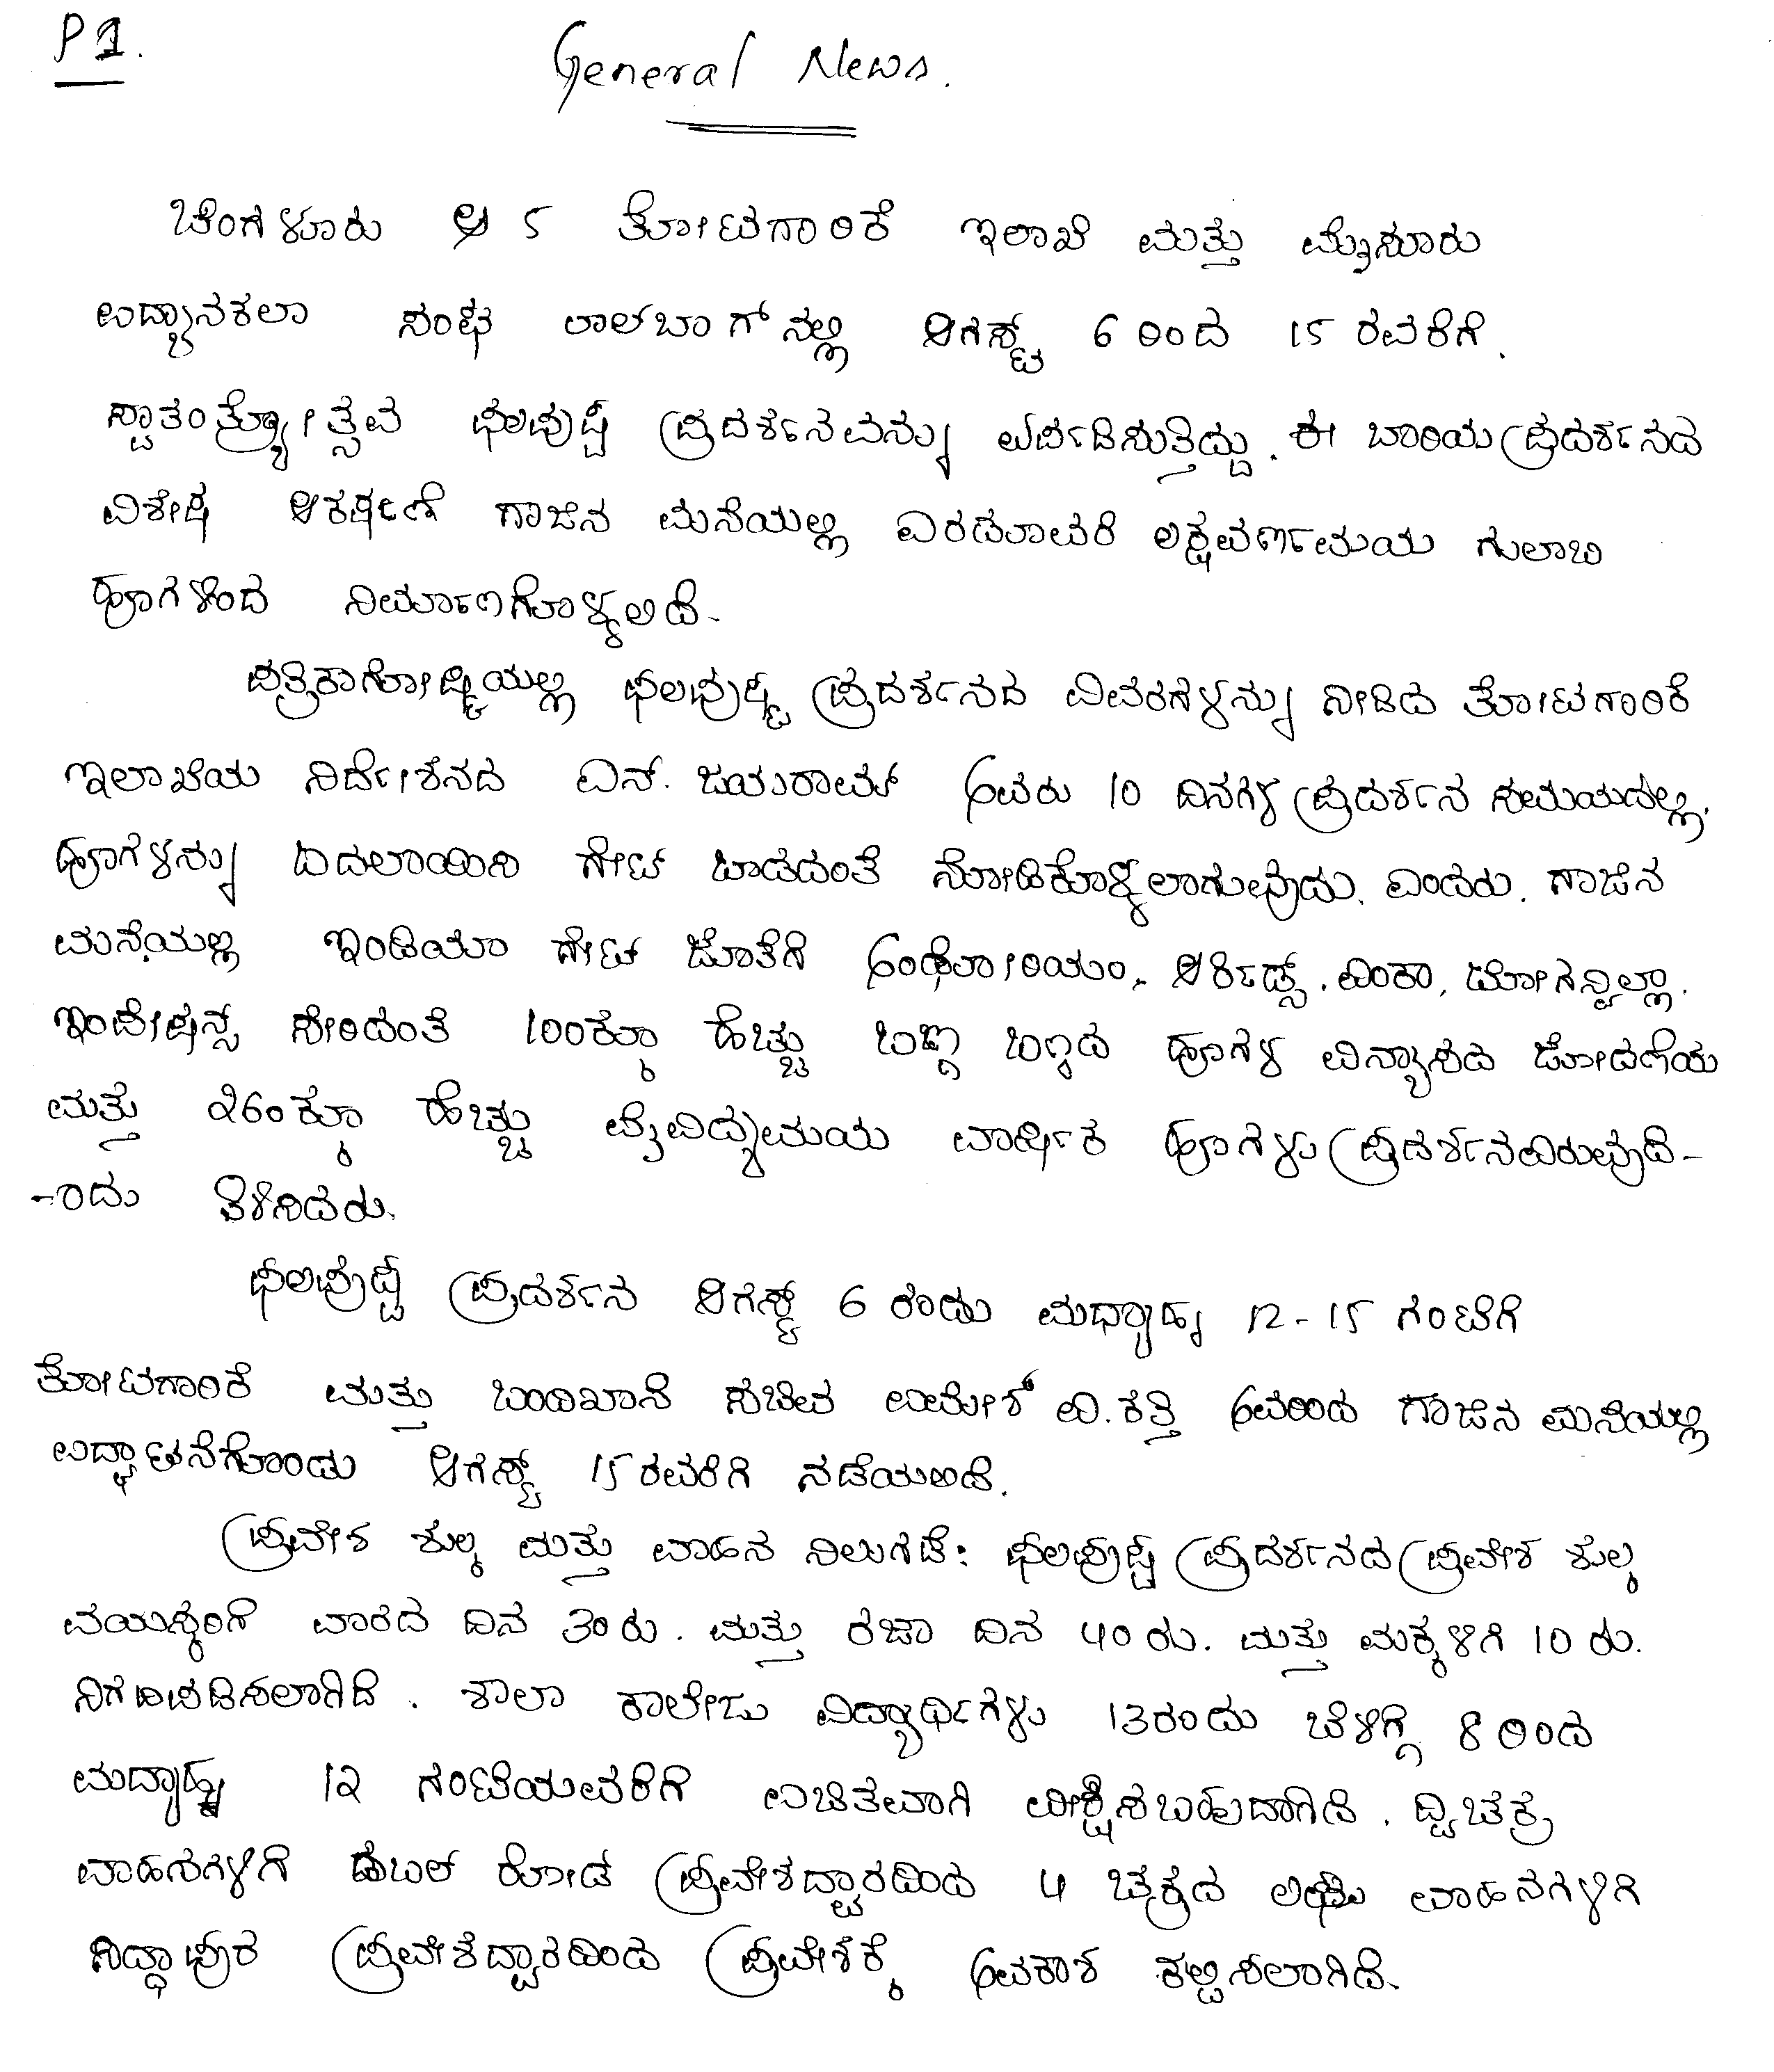 P1.
General News.
ಬೆಂಗಳೂರು ಆ 5 ತೋಟಗಾರಿಕೆ ಇಲಾಖೆ ಮತ್ತು ಮೈಸೂರು
ಉದ್ಯಾನಕಲಾ ಸಂಘ ಲಾಲ್‌ಬಾಗ್ ನಲ್ಲಿ ಆಗಸ್ಟ್ 6 ರಿಂದ 15 ರವರೆಗೆ.
ಸ್ವಾತಂತ್ರ್ಯೋತ್ಸವ ಫಲಪುಷ್ಪ ಪ್ರದರ್ಶನವನ್ನು ಏರ್ಪಡಿಸುತ್ತಿದ್ದು. ಈ ಬಾರಿಯ ಪ್ರದರ್ಶನದ
ವಿಶೇಷ ಆಕರ್ಷಣೆ ಗಾಜಿನ ಮನೆಯಲ್ಲಿ ಎರಡೂವರೆ ಲಕ್ಷವರ್ಣಮಯ ಗುಲಾಬಿ
ಹೂಗಳಿಂದ ನಿರ್ಮಾಣಗೊಳ್ಳಲಿದೆ.
ಪತ್ರಿಕಾಗೋಷ್ಠಿಯಲ್ಲಿ ಫಲಪುಷ್ಪ ಪ್ರದರ್ಶನದ ವಿವರಗಳನ್ನು ನೀಡಿದ ತೋಟಗಾರಿಕೆ
ಇಲಾಖೆಯ ನಿರ್ದೇಶನದ ಎನ್. ಜಯರಾಮ್ ಅವರು 10 ದಿನಗಳ ಪ್ರದರ್ಶನ ಸಮಯದಲ್ಲಿ.
ಹೂಗಳನ್ನು ಬದಲಾಯಿಸಿ ಗೇಟ್ ಬಾಡದಂತೆ ನೋಡಿಕೊಳ್ಳಲಾಗುವುದು. ಎಂದರು. ಗಾಜಿನ
ಮನೆಯಲ್ಲಿ ಇಂಡಿಯಾ ಗೇಟ್ ಜೊತೆಗೆ ಅಂಥೋರಿಯಂ, ಆರ್ಕಿಡ್ಸ್. ವಿಂಕಾ,
ಇಂಪೇಷನ್ಸ್ ಸೇರಿದಂತೆ 100ಕ್ಕೂ ಹೆಚ್ಚು ಬಣ್ಣ ಬಣ್ಣದ ಹೂಗಳ ವಿನ್ಯಾಸದ ಜೋಡಣೆಯ
ಮತ್ತು ೨60ಕ್ಕೂ ಹೆಚ್ಚು ವೈವಿಧ್ಯಮಯ ವಾರ್ಷಿಕ ಹೂಗಳು ಪ್ರದರ್ಶನವಿರುವುದೆ-
-ಂದು ತಿಳಿಸಿದರು.
ಫಲಪುಷ್ಪ ಪ್ರದರ್ಶನ ಆಗಸ್ಟ್ 6 ರಂದು ಮಧ್ಯಾಹ್ನ 12-15 ಗಂಟೆಗೆ
ತೋಟಗಾರಿಕೆ ಮತ್ತು ಬಂದಿಖಾನೆ ಸಚಿವ ಉಮೇಶ್ ವಿ. ಕತ್ತಿ ಅವರಿಂದ ಗಾಜಿನ ಮನೆಯಲ್ಲಿ
ಉದ್ಘಾಟನೆಗೊಂಡು ಆಗಸ್ಟ್ 15ರವರೆಗೆ ನಡೆಯಲಿದೆ.
ಪ್ರವೇಶ ಶುಲ್ಕ ಮತ್ತು ವಾಹನ ನಿಲುಗಡೆ: ಫಲಪುಷ್ಪ ಪ್ರದರ್ಶನದ ಪ್ರವೇಶ ಶುಲ್ಕ
ವಯಸ್ಕರಿಗೆ ವಾರದ ದಿನ 30 ರು. ಮತ್ತು ರಜಾ ದಿನ 40 ರು. ಮತ್ತು ಮಕ್ಕಳಿಗೆ 10 ರು.
ನಿಗದಿಪಡಿಸಲಾಗಿದೆ. ಶಾಲಾ ಕಾಲೇಜು ವಿದ್ಯಾರ್ಥಿಗಳು 13ರಂದು ಬೆಳಗ್ಗೆ 8 ರಿಂದ
ಮಧ್ಯಾಹ್ನ 1೨ ಗಂಟೆಯವರೆಗೆ ಉಚಿತವಾಗಿ ವೀಕ್ಷಿಸಬಹುದಾಗಿದೆ. ದ್ವಿಚಕ್ರ
ವಾಹನಗಳಿಗೆ ಡಬಲ್ ರೋಡ ಪ್ರವೇಶದ್ವಾರದಿಂದ 4 ಚಕ್ರದ ಲಘು ವಾಹನಗಳಿಗೆ
ಸಿದ್ಧಾಪುರ ಪ್ರವೇಶದ್ವಾರದಿಂದ ಪ್ರವೇಶಕ್ಕೆ ಅವಕಾಶ ಕಲ್ಪಿಸಲಾಗಿದೆ.